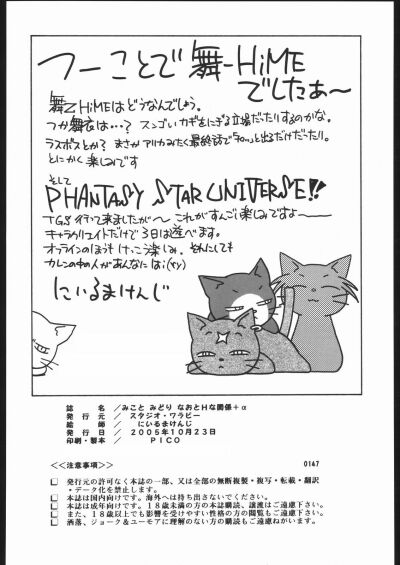 つーことで 舞-HiME
でしたぁ〜
舞乙HiMEはどうなんでしょう。
つか舞衣は…? スンゴいカギをにぎる立場だったりするのかな。
ラスボスとか? まさかアリカみたく最終話で
とにかく楽しみです
そして
PHANTASY STAR UNIVERSE!!
TGS行って来ましたが〜 これがすんごい楽しみですよ〜
キャラクリエイトだけで3日は遊べます。
オンラインのほうもけっこう楽しみ。それにしても
カレンの中の人があんなには
にいるまけんじ
誌 名 /みこと みどり なおとHな関係+α
発 行 元 /スタジオ・ワラビー
絵 師 /にいるまけんじ
発 行 日 /2005年10月23日
印刷・製本 / PICO
<<注意事項>> 0147
□ 発行元の許可なく本誌の一部、又は全部の無断複製・複写・転載・翻訳
・データ化を禁止します。
□ 本誌は国内向けです。海外へは持ち出さないでください。
□ 本誌は成年向けです。18歳未満の方の本誌購読、譲渡はご遠慮下さい。
□ また、18歳以上でも影響を受けやすい性格の方の閲覧もご遠慮下さい。
□ 洒落、ジョーク&ユーモアに理解のない方の購読もご遠慮ねがいます。